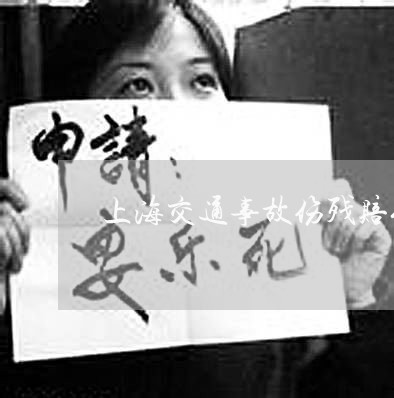 申請：
上海交通事故伤残赔
安乐死